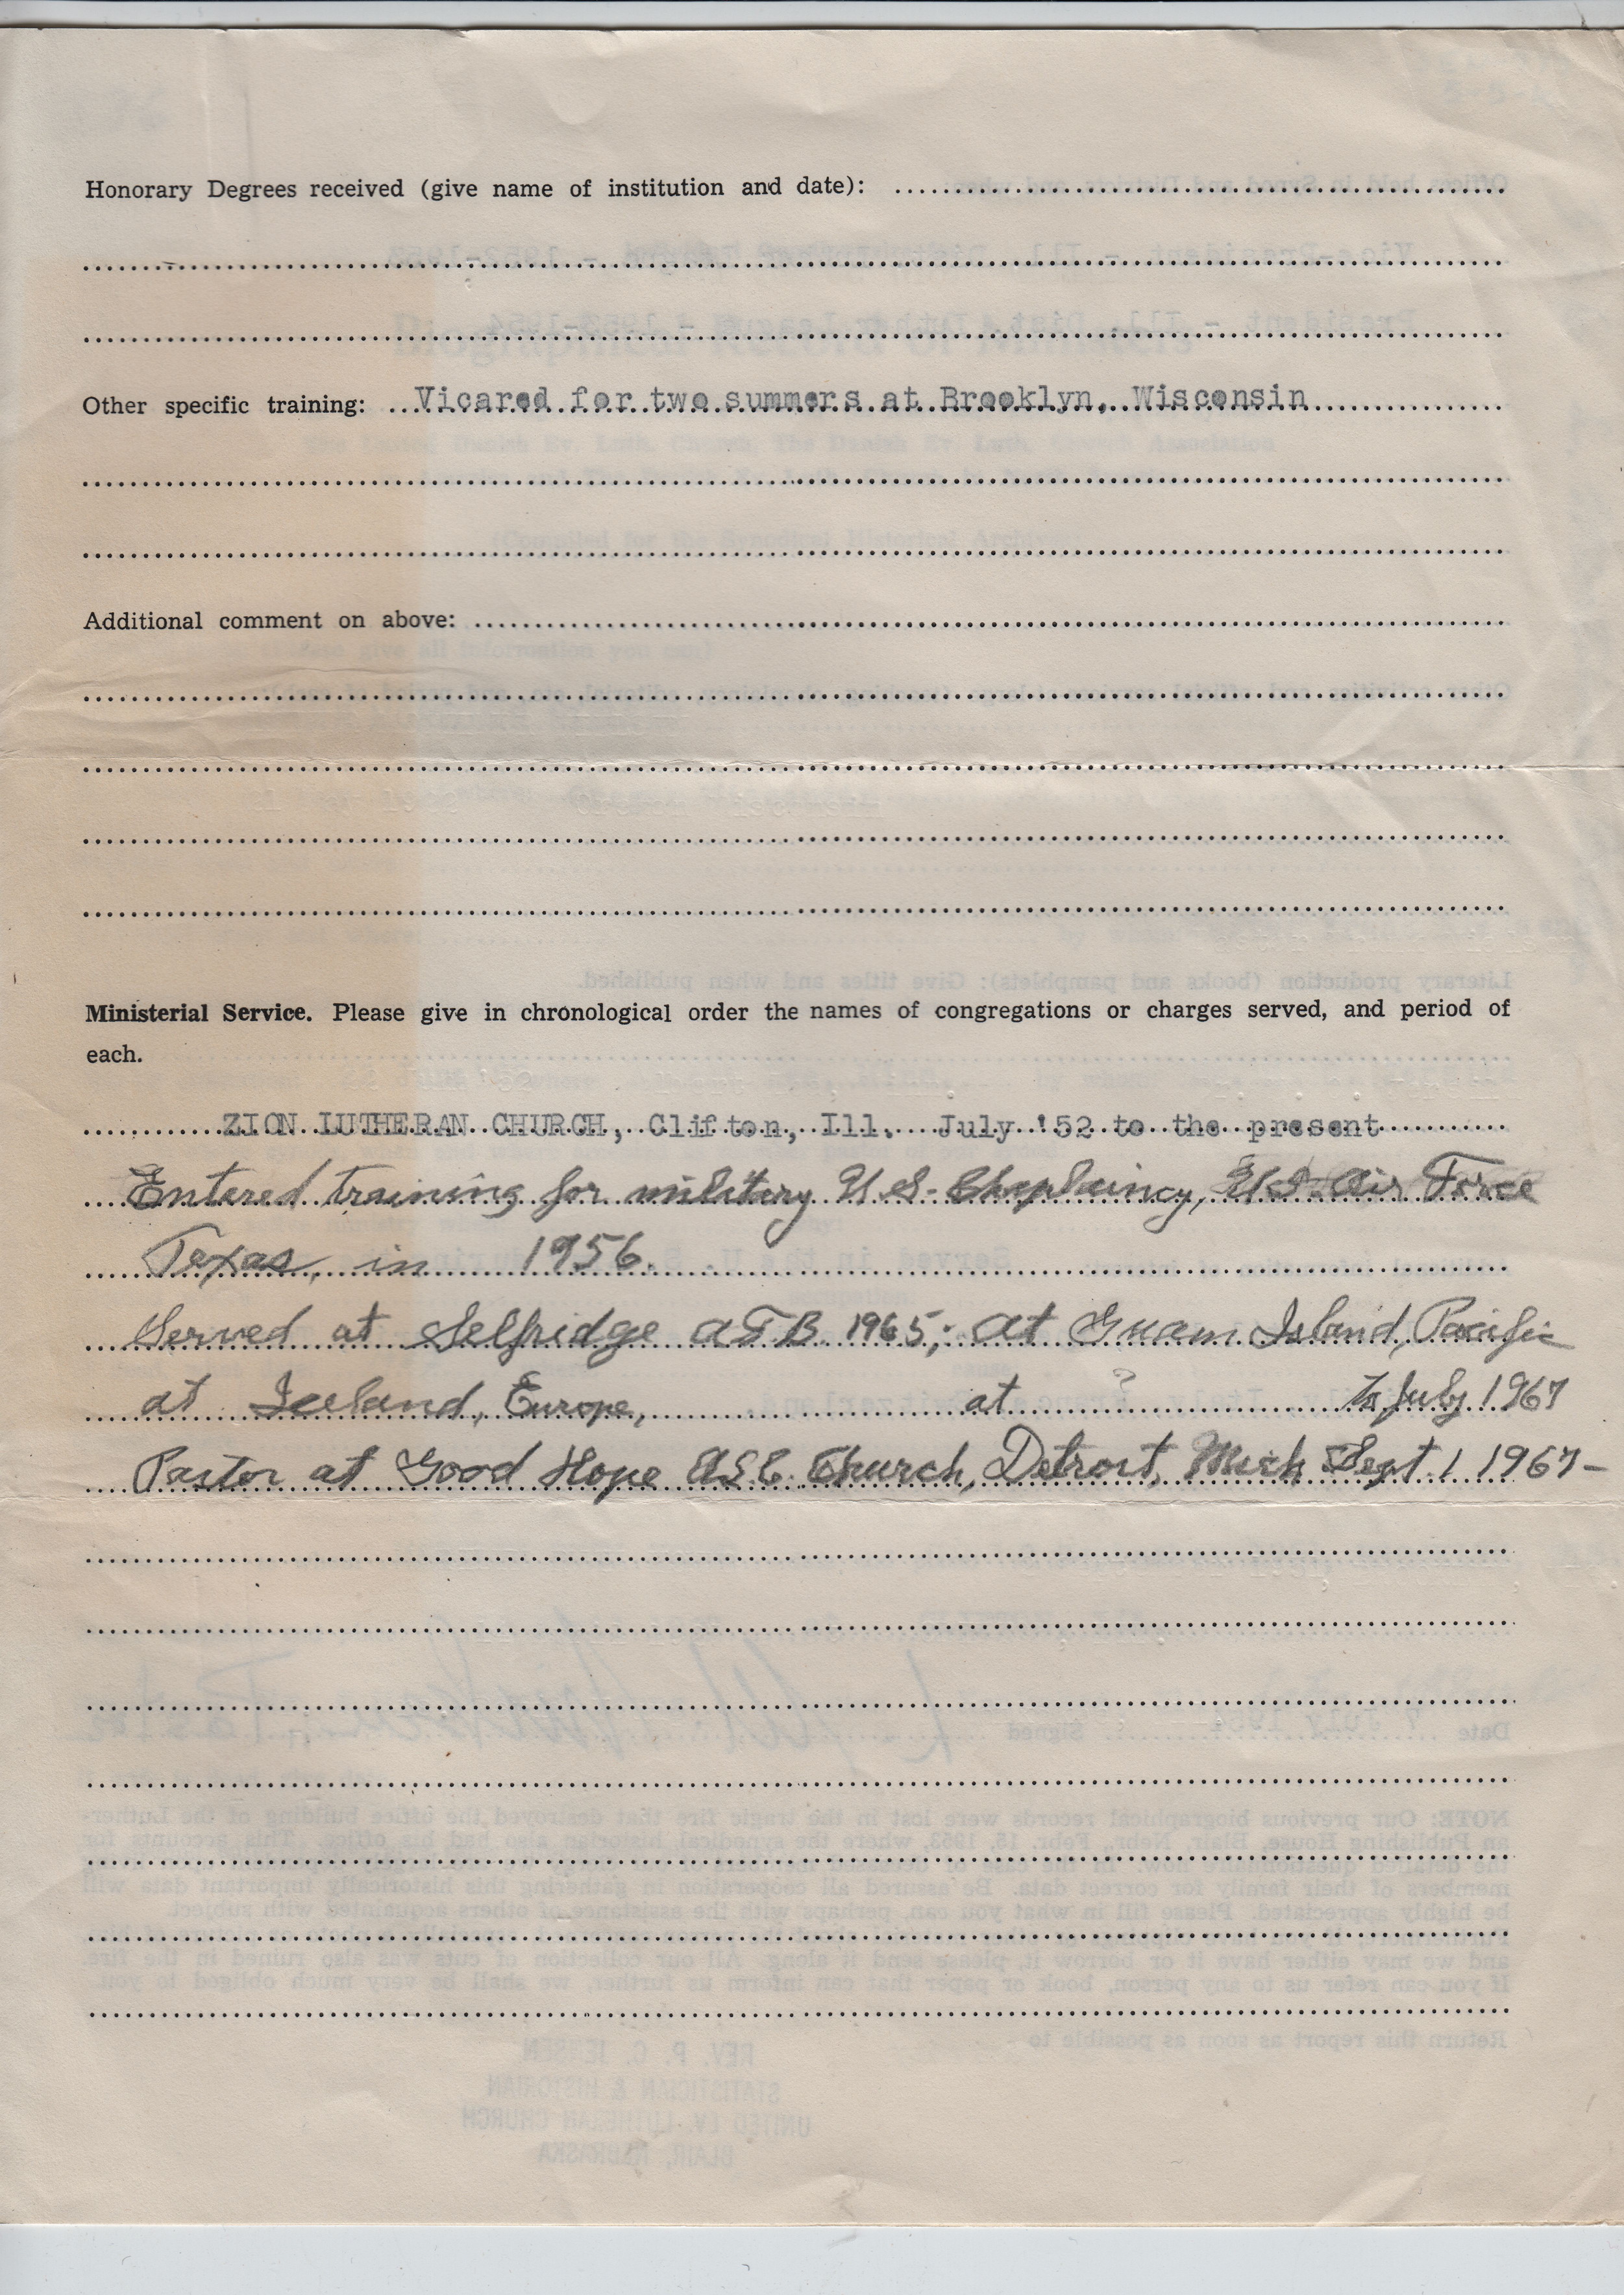 Honorary Degrees received (give name of institution and date):
Other specific training: Vicared for two summers at Brooklyn, Wisconsin
Additional comment on above:
Ministerial Service. Please give in chronological order the names of congregations or charges served, and period of
each.
ZION LUTHERAN CHURCH, Clifton, Ill. July '52 to the present
Entered training for military U.S. Chaplaincy, U.S. Air Force
Texas, in 1956.
Served at Selfridge AFB 1965; at Guam Island, Pacific
at Iceland, Europe, at ? July 1967
Pastor at Good Hope Church, Detroit, Mich Sept 1 1967-